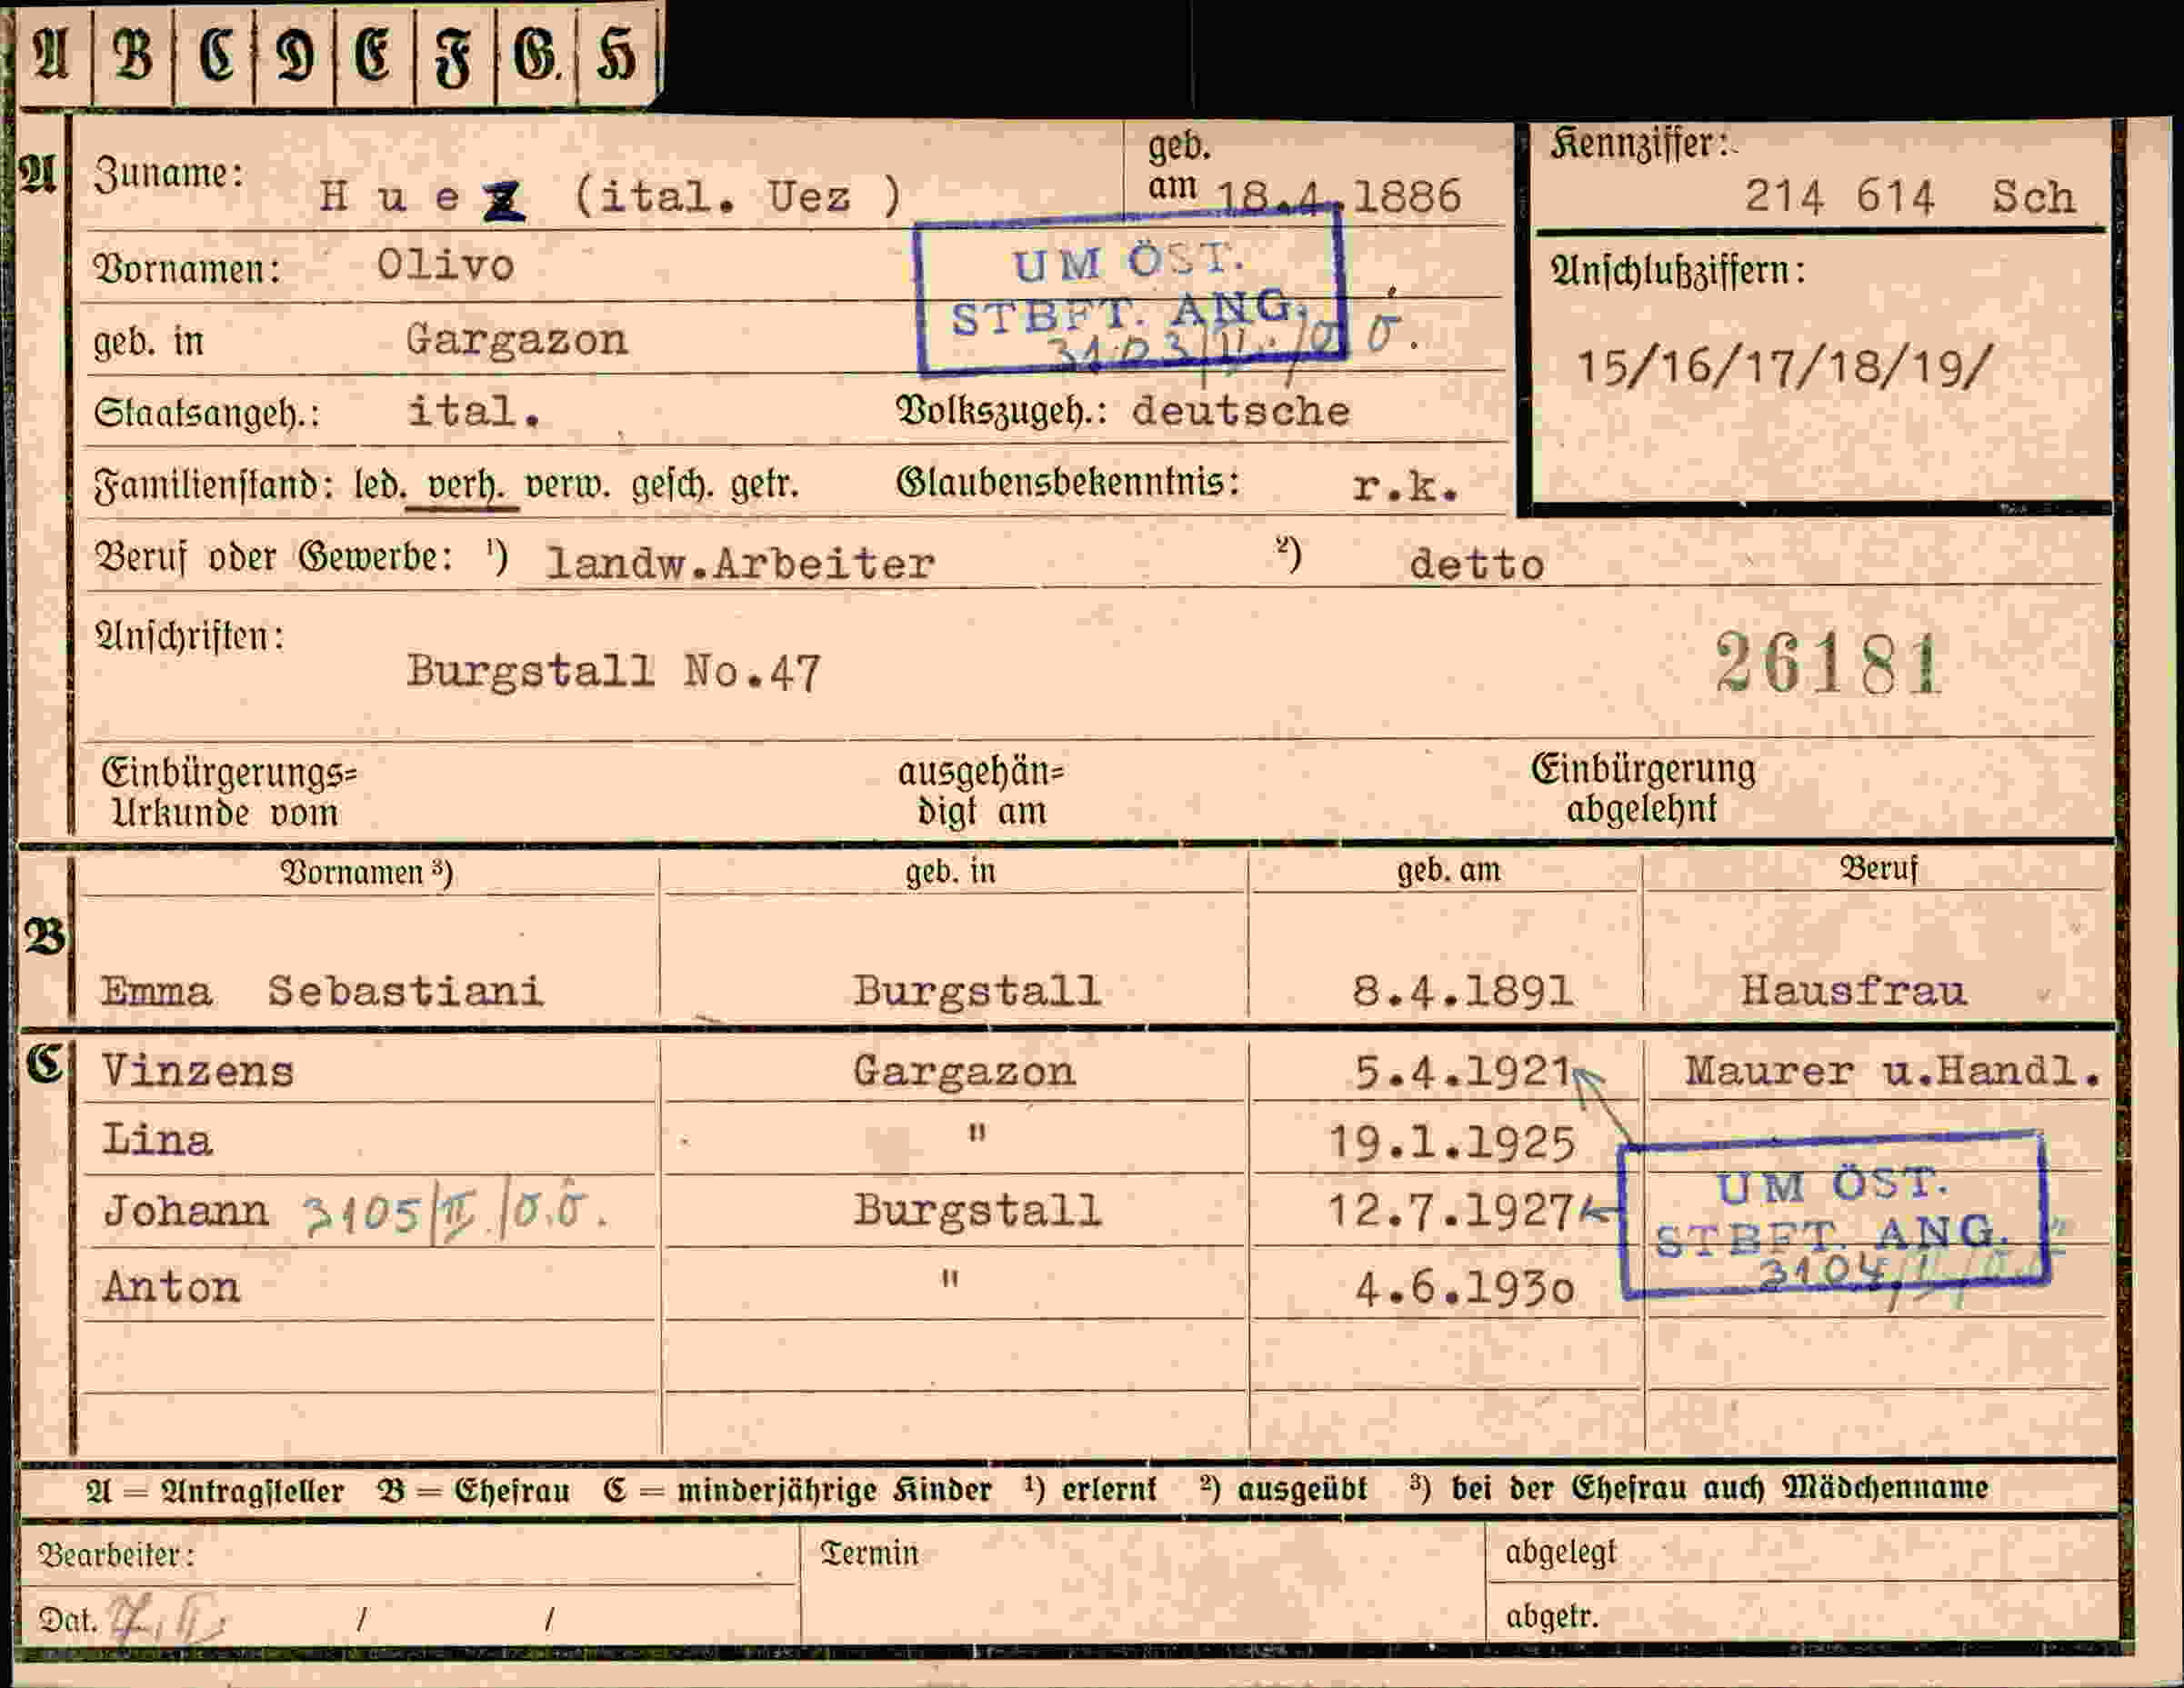 A B C D E F G. H
A Zuname: H u e z (ital. Uez ) geb. am 18.4.1886
Kennziffer: 214 614 Sch
Vornamen: Olivo
UM ÖST.
STBFT. ANG.
3103/II./Ö.Ö.
Anschlußziffern:
15/16/17/18/19/
geb. in Gargazon
Staatsangeh.: ital. Volkszugeh.: deutsche
Familienstand: led. verh. verw. gesch. getr. Glaubensbekenntnis: r.k.
Beruf oder Gewerbe: ¹) landw.Arbeiter ²) detto
Anschriften: Burgstall No.47
26181
Einbürgerungs=
Urkunde vom
ausgehän=
digt am
Einbürgerung
abgelehnt
B Vornamen ³) geb. in geb. am Beruf
Emma Sebastiani Burgstall 8.4.1891 Hausfrau
C Vinzens Gargazon 5.4.1921 Maurer u.Handl.
Lina " 19.1.1925
Johann 3105/II./Ö.Ö. Burgstall 12.7.1927
UM ÖST.
STBFT. ANG.
3104
Anton " 4.6.1930
A = Antragsteller B = Ehefrau C = minderjährige Kinder ¹) erlernt ²) ausgeübt ³) bei der Ehefrau auch Mädchenname
Bearbeiter: Termin abgelegt
Dat. / / abgetr.